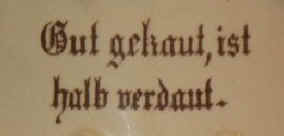 Gut gekaut, ist
halb verdaut.